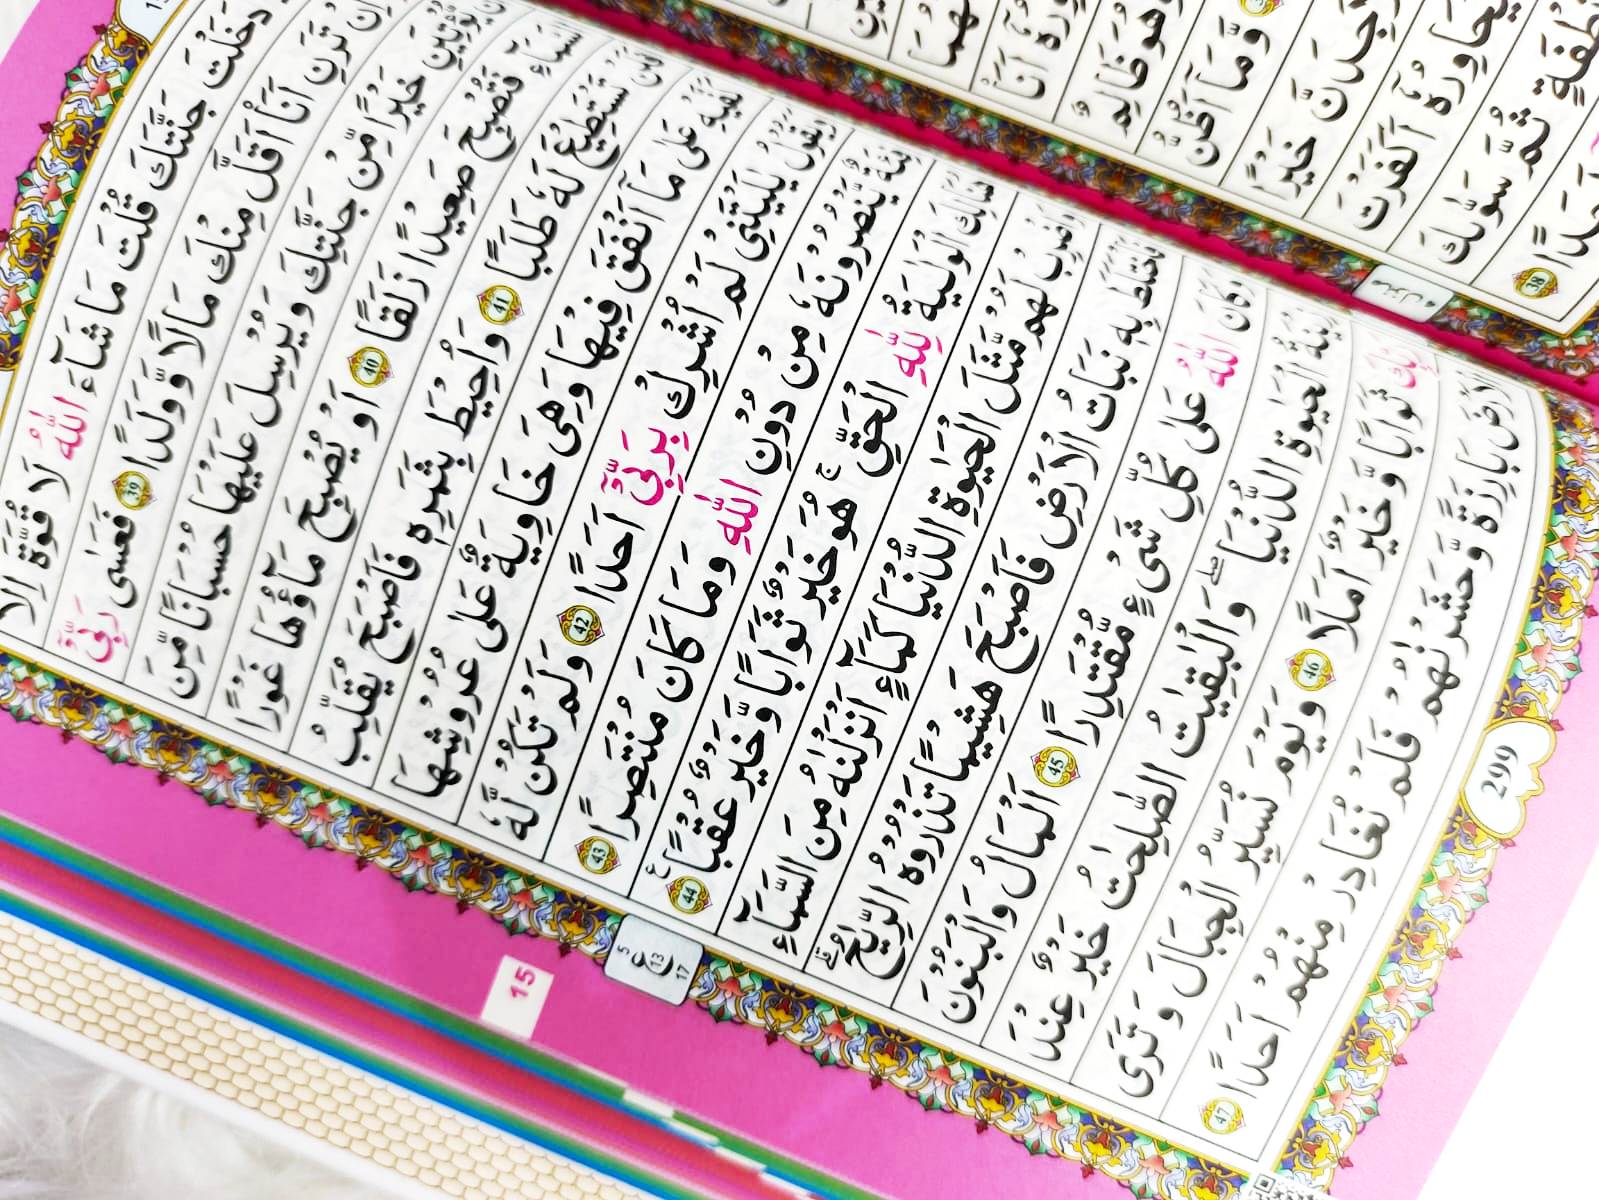 مِنْهُمَا
اَنَا۠
وَهُوَ ظَالِمٌ
وَّمَآ اَظُنُّ
لَاَجِدَنَّ خَيْرًا
يُحَاوِرُهٗٓ اَكَفَرْتَ
نُّطْفَةٍ ثُمَّ سَوّٰىكَ
اَحَدًا 38
دَخَلْتَ جَنَّتَكَ قُلْتَ مَا شَآءَ اللّٰهُ لَا قُوَّةَ اِلَّا
اِنْ تَرَنِ اَنَا۠ اَقَلَّ مِنْكَ مَالًا وَّوَلَدًا 39 فَعَسٰى رَبِّيْٓ
اَنْ يُّؤْتِيَنِ خَيْرًا مِّنْ جَنَّتِكَ وَيُرْسِلَ عَلَيْهَا حُسْبَانًا مِّنَ
السَّمَآءِ فَتُصْبِحَ صَعِيْدًا زَلَقًا 40 اَوْ يُصْبِحَ مَآؤُهَا غَوْرًا
فَلَنْ تَسْتَطِيْعَ لَهٗ طَلَبًا 41 وَاُحِيْطَ بِثَمَرِهٖ فَاَصْبَحَ يُقَلِّبُ
كَفَّيْهِ عَلٰى مَآ اَنْفَقَ فِيْهَا وَهِيَ خَاوِيَةٌ عَلٰى عُرُوْشِهَا
وَيَقُوْلُ يٰلَيْتَنِيْ لَمْ اُشْرِكْ بِرَبِّيْٓ اَحَدًا 42 وَلَمْ تَكُنْ لَّهٗ
فِئَةٌ يَّنْصُرُوْنَهٗ مِنْ دُوْنِ اللّٰهِ وَمَا كَانَ مُنْتَصِرًا 43
هُنَالِكَ الْوَلَايَةُ لِلّٰهِ الْحَقِّ هُوَ خَيْرٌ ثَوَابًا وَّخَيْرٌ عُقْبًا 44
وَاضْرِبْ لَهُمْ مَّثَلَ الْحَيٰوةِ الدُّنْيَا كَمَآءٍ اَنْزَلْنٰهُ مِنَ السَّمَآءِ
فَاخْتَلَطَ بِهٖ نَبَاتُ الْاَرْضِ فَاَصْبَحَ هَشِيْمًا تَذْرُوْهُ الرِّيٰحُ
وَكَانَ اللّٰهُ عَلٰى كُلِّ شَيْءٍ مُّقْتَدِرًا 45 اَلْمَالُ وَالْبَنُوْنَ
زِيْنَةُ الْحَيٰوةِ الدُّنْيَا وَالْبٰقِيٰتُ الصّٰلِحٰتُ خَيْرٌ عِنْدَ
رَبِّكَ ثَوَابًا وَّخَيْرٌ اَمَلًا 46 وَيَوْمَ نُسَيِّرُ الْجِبَالَ وَتَرَى
الْاَرْضَ بَارِزَةً وَّحَشَرْنٰهُمْ فَلَمْ نُغَادِرْ مِنْهُمْ اَحَدًا 47
5
ع 13
17
15
299